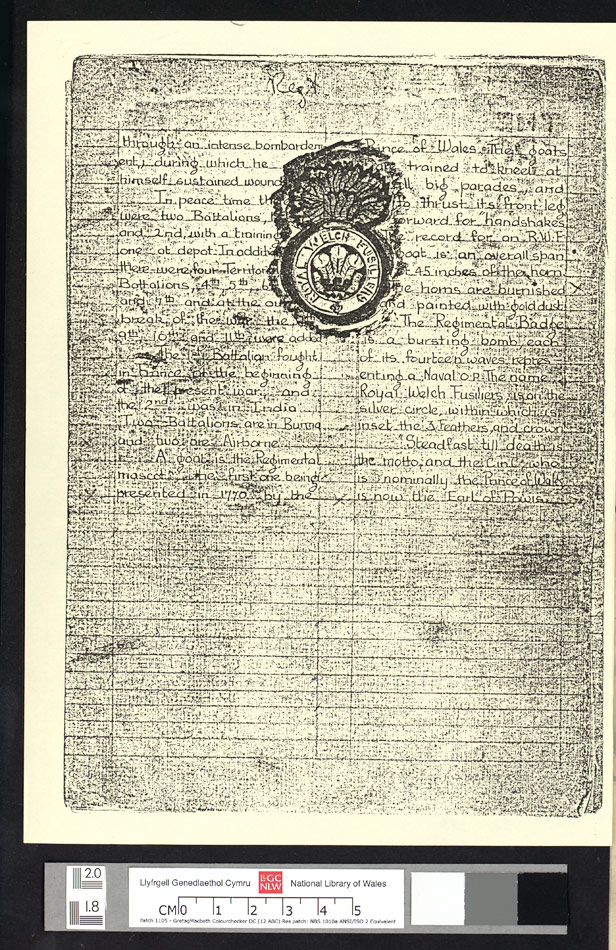 Regt
through an intense bombardem
ent, during which he
himself sustained wound
In peace time th
were two Battalions,
and 2nd with a training
one at depot. In addit
there were four Territor
Battalions, 4th 5th
and 7th and at the ou
break of the war the
9th 10th and 11th were added
The Battalion fought
in France at the beginning
of the present war, and
the 2nd was in India
Two Battalions are in Burma
and two are Airborne.
A goat is the Regimental
mascot, the first one being
presented in 1770 by the
Prince of Wales. The goats
trained to kneel at
big parades, and
to thrust its front leg
forward for handshakes
record for an R.W.F
goat is an overall span
45 inches of the horn
horns are burnished
painted with gold dust
The Regimental Badge
is a bursting bomb each
of its fourteen waves repres-
enting a Naval o.p. The name
Royal Welch Fusiliers is on the
silver circle, within which is
inset the 3 Feathers, and crown
Steadfast till death is
the motto, and the C in C who
is nominally the Prince of Wales
is now the Earl of Powis.
ROYAL WELCH FUSILIERS
2.0
1.8
Llyfrgell Genedlaethol Cymru
LlGC
NLW
National Library of Wales
CM 0 1 2 3 4 5
Patch 1105 - GretagMacbeth Colourchecker DC (12 ABC) Res patch: NBS 1010a ANSI/ISO 2 Equivalent